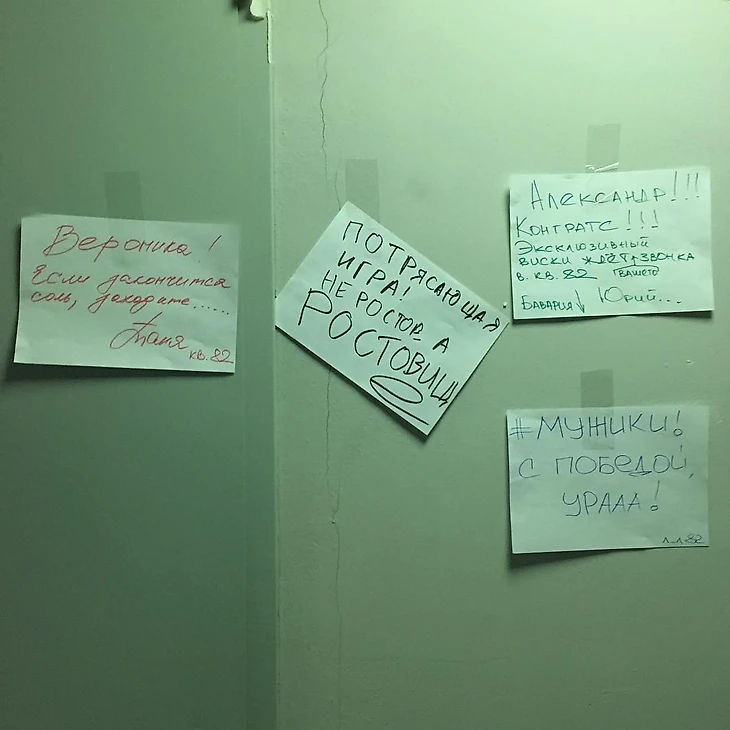 Вероника!
Если закончится
соль, заходите......
Таня
кв. 82
ПОТРЯСАЮЩАЯ
ИГРА!
НЕ РОСТОВ А
РОСТОВИЩ
АЛЕКСАНДР!!!
КОНГРАТС!!!
ЭКСКЛЮЗИВНЫЙ
ВИСКИ ЖДЁТ ЗВОНКА
В. КВ. 82 ВАШЕГО
БАВАРИЯ↓ ЮРИЙ...
#МУЖИКИ!
С ПОБЕДОЙ,
УРААА!